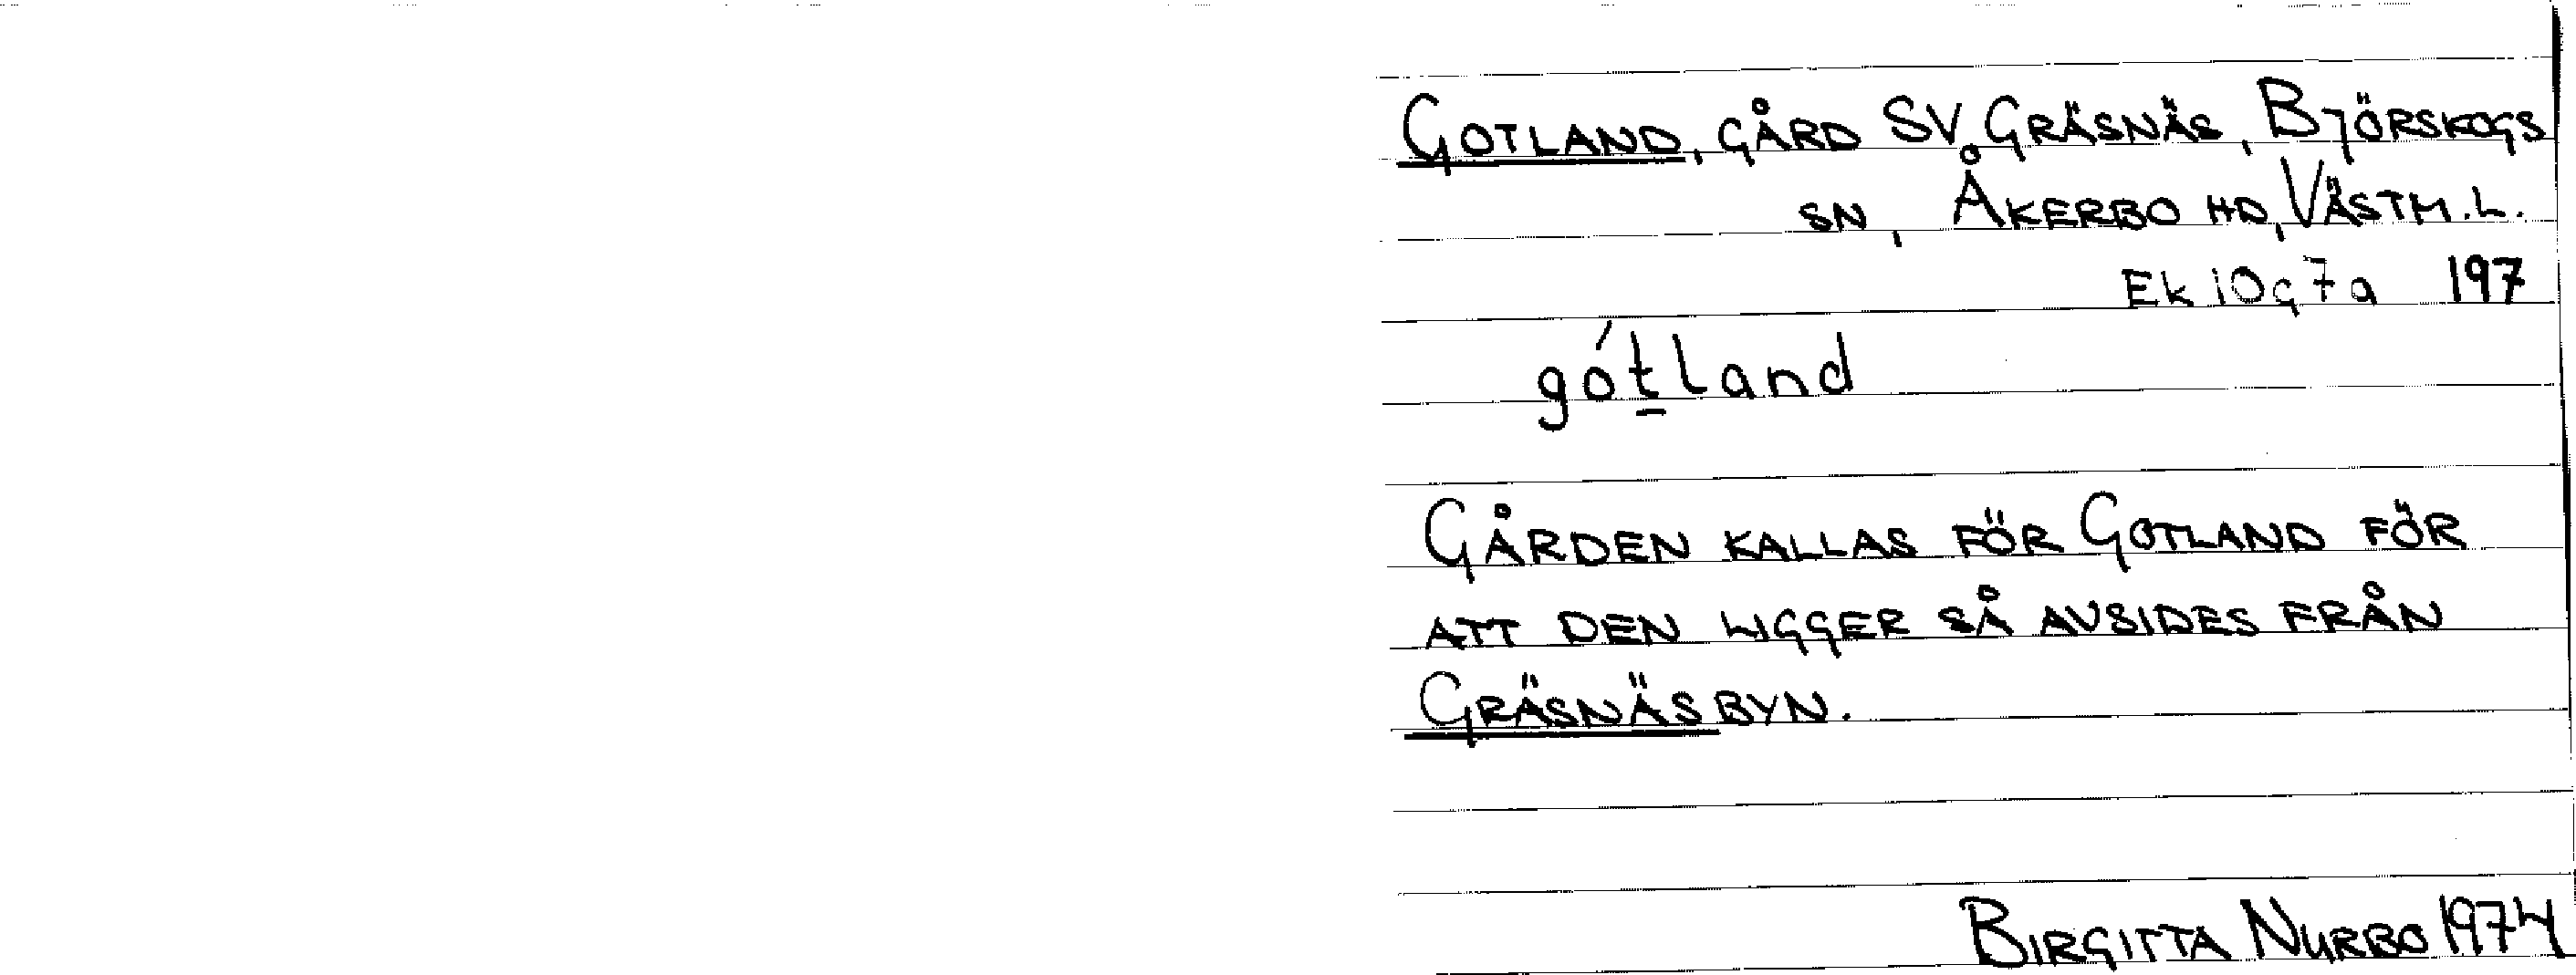 GOTLAND, GÅRD SV GRÄSNÄS, BJÖRSKOGS
SN, ÅKERBO HD, VÄSTM.L.
Ek 10g7a 197
gót̲land
GÅRDEN KALLAS FÖR GOTLAND FÖR
ATT DEN LIGGER SÅ AVSIDES FRÅN
GRÄSNÄSBYN.
BIRGITTA NURBO 1974